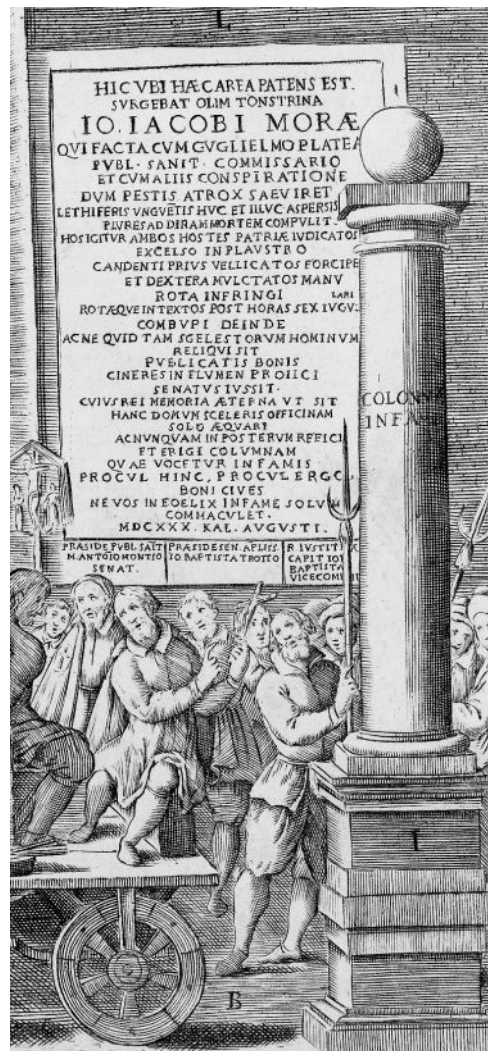 L
HIC VBI HÆC AREA PATENS EST.
SVRGEBAT OLIM TONSTRINA
IO. IACOBI MORÆ
QVI FACTA CVM GVGLIELMO PLATEA
PVBL. SANIT. COMMISSARIO
ET CVM ALIIS CONSPIRATIONE
DVM PESTIS ATROX SAEVIRET
LETHIFERIS VNGVETIS HVC ET ILLVC ASPERSIS
PLVRES AD DIRAM MORTEM COMPVLIT.
HOS IGITVR AMBOS HOSTES PATRIÆ IVDICATOS
EXCELSO IN PLAVSTRO
CANDENTI PRIVS VELLICATOS FORCIPE
ET DEXTERA MVLCTATOS MANV
ROTA INFRINGI LARI
ROTÆQVE INTEXTOS POST HORAS SEX IVGV-
COMBVPI DEINDE
AC NE QVID TAM SCELESTORVM HOMINVM
RELIQVI SIT
PVBLICATIS BONIS
CINERES IN FLVMEN PROIICI
SENATVS IVSSIT.
CVIVS REI MEMORIA ÆTERNA VT SIT
HANC DOMVM SCELERIS OFFICINAM
SOLO ÆQVARI
AC NVNQVAM IN POSTERVM REFICI
ET ERIGI COLVMNAM
QVAE VOCETVR INFAMIS
PROCVL HINC, PROCVL ERGO
BONI CIVES
NE VOS INFOELIX INFAME SOLVM
COMMACVLET.
MDCXXX. KAL. AVGVSTI.
PRÆSIDE PVBL. SAIT
M. ANTOIO MONTIO
SENAT.
PRÆSIDE SEN. APLISS.
IO. BAPTISTA TROTTO
R IVSTIT
CAPIT IO
BAPTISTA
VICECOM
COLONNA
INFAM
I
B